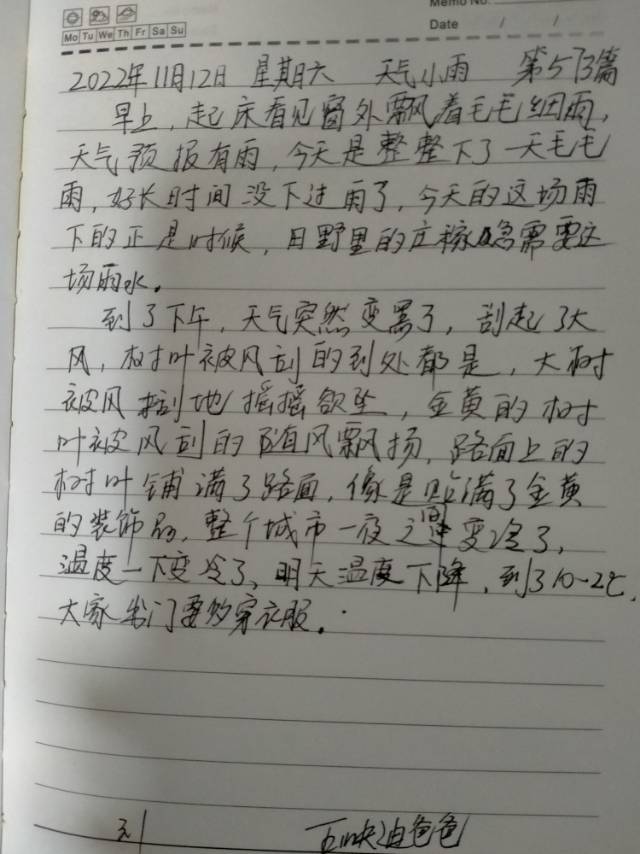 Memo No.
Mo Tu We Th Fr Sa Su
Date / /
2022年11月12日 星期六 天气小雨 第573篇
早上，起床看见窗外飘着毛毛细雨，
天气预报有雨，今天是整整下了一天毛毛
雨，好长时间没下过雨了，今天的这场雨
下的正是时候，田野里的庄稼急需要这
场雨水。
到了下午，天气突然变黑了，刮起了大
风，树叶被风刮的到处都是，大树
被风刮地摇摇欲坠，金黄的树
叶被风刮的随风飘扬，路面上的
树叶铺满了路面，像是贴满了金黄
的装饰品，整个城市一夜之间变冷了，
温度一下变冷了，明天温度下降，到了10-2℃，
大家出门要多穿衣服。
爸爸